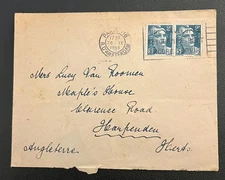 Mers Lucy Van Roomen
Maple's House
Clarence Road
Harpenden
Angleterre. Herts.